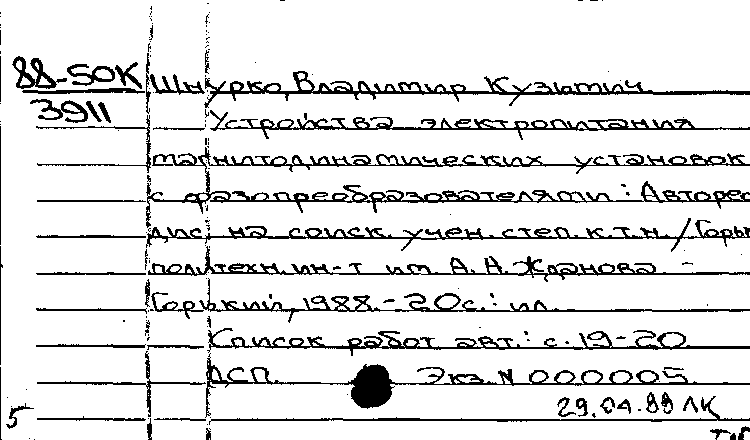 88-50К Шнурко, Владимир Кузьмич
3911
Устройства электропитания
магнитодинамических установок
с фазопреобразователями: Авторе
дис. на соиск. учен. степ. к.т.н. / Горьк
политехн. ин-т им. А. А. Жданова. -
Горький, 1988. - 20с.: ил.
Список работ авт.: с. 19-20
ДСП. Экз. N 000005.
29.04.88 ЛК
5